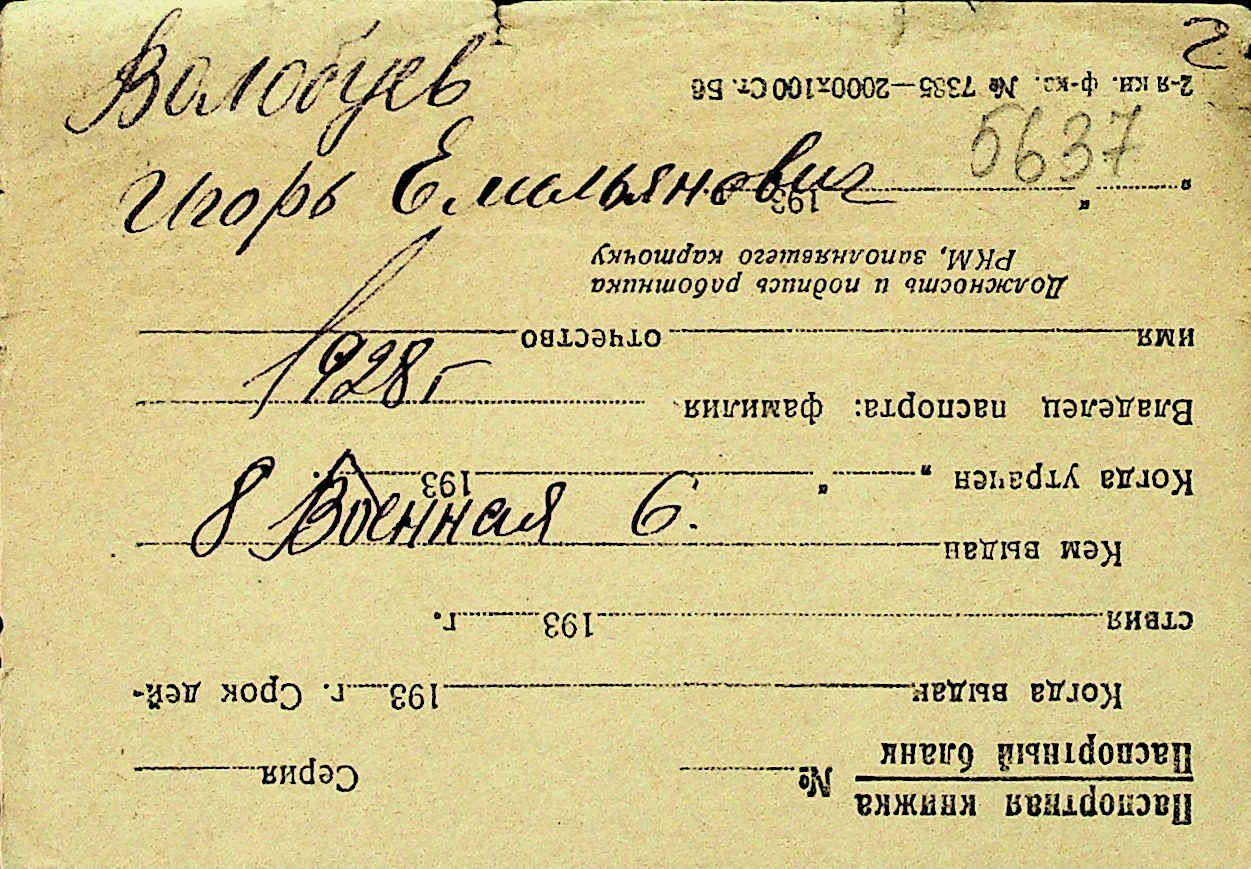 Волобуев
5637
Игорь Емельянович
1928 г
8 Военная 6.
Паспортная книжка
Паспортный бланк № Серия
Когда выдан 193 г. Срок дей-
ствия 193 г.
Кем выдан
Когда утрачен „ “ 193 .
Владелец паспорта: фамилия
имя отчество
Должность и подпись работника
РКМ, заполнявшего карточку
„ “ 193
2-я кн. ф-ка. № 7385—2000х100 Ст. Бб